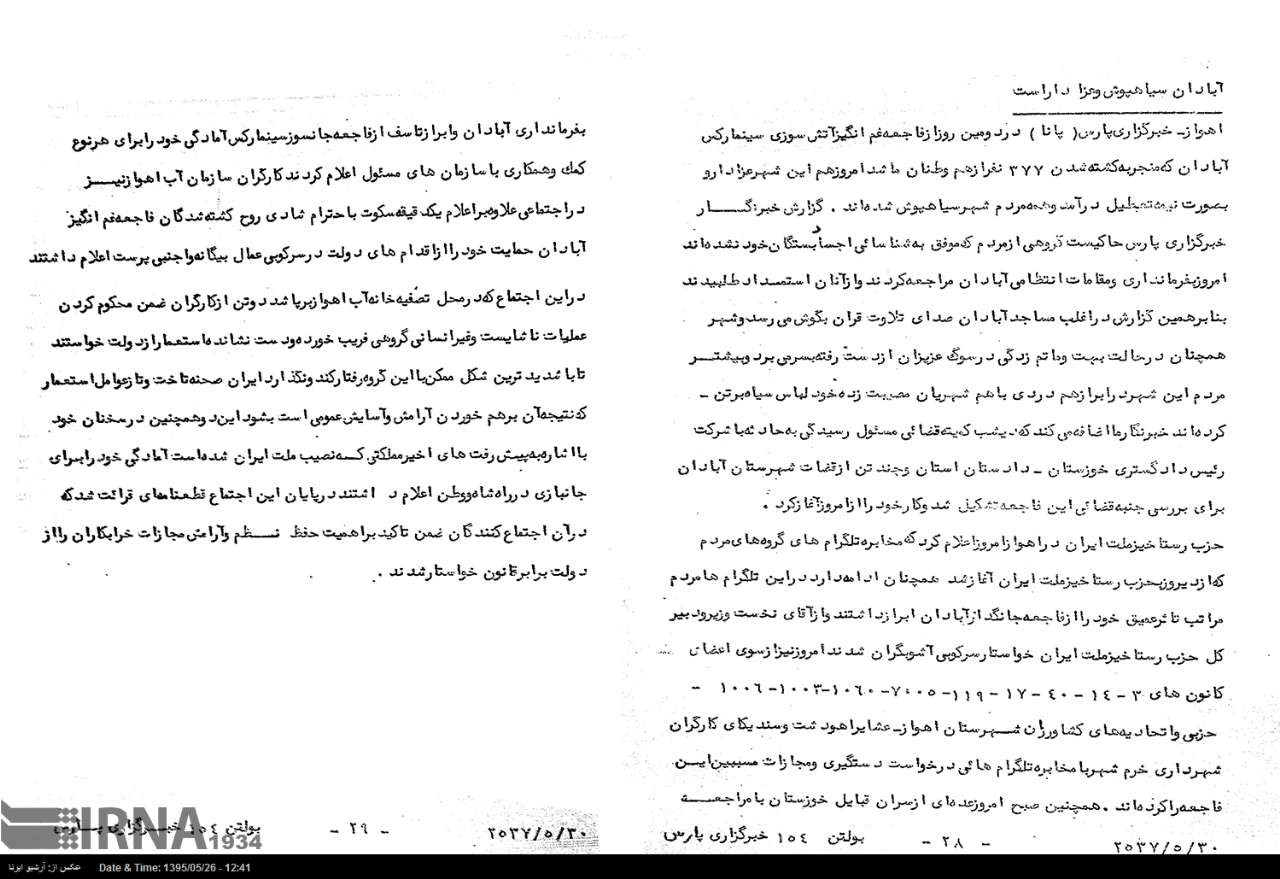 آبادان سیاهپوش وعزا داراست
اهواز ـ خبرگزاری پارس ( پانا ) در دومین روز از فاجعه غم انگیز آتش سوزی سینما رکس
آبادان که منجر به کشته شدن ۳۷۷ نفر از هم وطنان ما شد امروز هم این شهر عزا دار و
بصورت نیمه تعطیل در آمد وهمه مردم شهر سیاهپوش شده اند . گزارش خبرنگار
خبرگزاری پارس حاکیست گروهی از مردم که موفق به شناسائی اجساد بستگان خود نشده اند
امروز بفرمانداری ومقامات انتظامی آبادان مراجعه کردند و از آنان استمداد طلبیدند
بنا بر همین گزارش در اغلب مساجد آبادان صدای تلاوت قران بگوش می رسد وشهر
همچنان در حالت بهت وماتم زدگی در سوگ عزیزان از دست رفته بسر می برد وبیشتر
مردم این شهر در ابراز هم دردی با هم شهریان مصیبت زده خود لباس سیاه برتن ـ
کرده اند خبرنگار ما اضافه می کند که دیشب کمیته قضائی مسئول رسیدگی به حادثه با شرکت
رئیس دادگستری خوزستان ـ دادستان استان وچند تن از قضات شهرستان آبادان
برای بررسی جنبه قضائی این فاجعه تشکیل شد وکار خود را از امروز آغاز کرد .
حزب رستاخیز ملت ایران در اهواز امروز اعلام کرد که مخابره تلگرام های گروه های مردم
که از دیروز بحزب رستاخیز ملت ایران آغاز شد همچنان ادامه دارد در این تلگرام ها مردم
مراتب تاثر عمیق خود را از فاجعه جانگداز آبادان ابراز داشتند و از آقای نخست وزیر ودبیر
کل حزب رستاخیز ملت ایران خواستار سرکوبی آشوبگران شدند امروز نیز از سوی اعضای
کانون های ۳ - ۱٤ - ٤۰ - ۱۷ - ۱۱۹ - ۷۰۰۵ - ۱۰٦۰ - ۱۰۰۳ - ۱۰۰٦ -
حزبی واتحادیه های کشاورزان شهرستان اهواز ـ عشایر اهود شت وسندیکای کارگران
شهرداری خرم شهر با مخابره تلگرام هائی درخواست دستگیری ومجازات مسببین این
فاجعه را کرده اند . همچنین صبح امروز عده ای از سران قبایل خوزستان با مراجعه
۲۵۳۷/۵/۳۰ - ۲۸ - بولتن ۱۵٤ خبرگزاری پارس
بفرمانداری آبادان وابراز تاسف از فاجعه جانسوز سینما رکس آمادگی خود را برای هر نوع
کمك وهمکاری با سازمان های مسئول اعلام کردند کارگران سازمان آب اهواز نیز
در اجتماعی علاوه بر اعلام یکدقیقه سکوت با حترام شادی روح کشته شدگان فاجعه غم انگیز
آبادان حمایت خود را از اقدام های دولت در سرکوبی عمال بیگانه واجنبی پرست اعلام داشتند
در این اجتماع که در محل تصفیه خانه آب اهواز برپا شد دوتن از کارگران ضمن محکوم کردن
عملیات ناشایست وغیر انسانی گروهی فریب خورده ودست نشانده استعمار از دولت خواستند
تا با شدید ترین شکل ممکن با این گروه رفتار کند ونگذارد ایران صحنه تاخت وتاز عوامل استعمار
که نتیجه آن برهم خوردن آرامش وآسایش عمومی است بشود این دو همچنین در سخنان خود
با اشاره به پیش رفت های اخیر مملکتی که نصیب ملت ایران شده است آمادگی خود را برای
جانبازی در راه شاه ووطن اعلام داشتند در پایان این اجتماع قطعنامه ای قرائت شد که
در آن اجتماع کنندگان ضمن تاکید بر اهمیت حفظ نظم وآرامش مجازات خرابکاران را از
دولت برابر قانون خواستار شدند .
۲۵۳۷/۵/۳۰ - ۲۹ - بولتن ۱۵٤ خبرگزاری پارس
IRNA
1934
عکس از: آرشیو ایرنا Date & Time: 1395/05/26 - 12:41